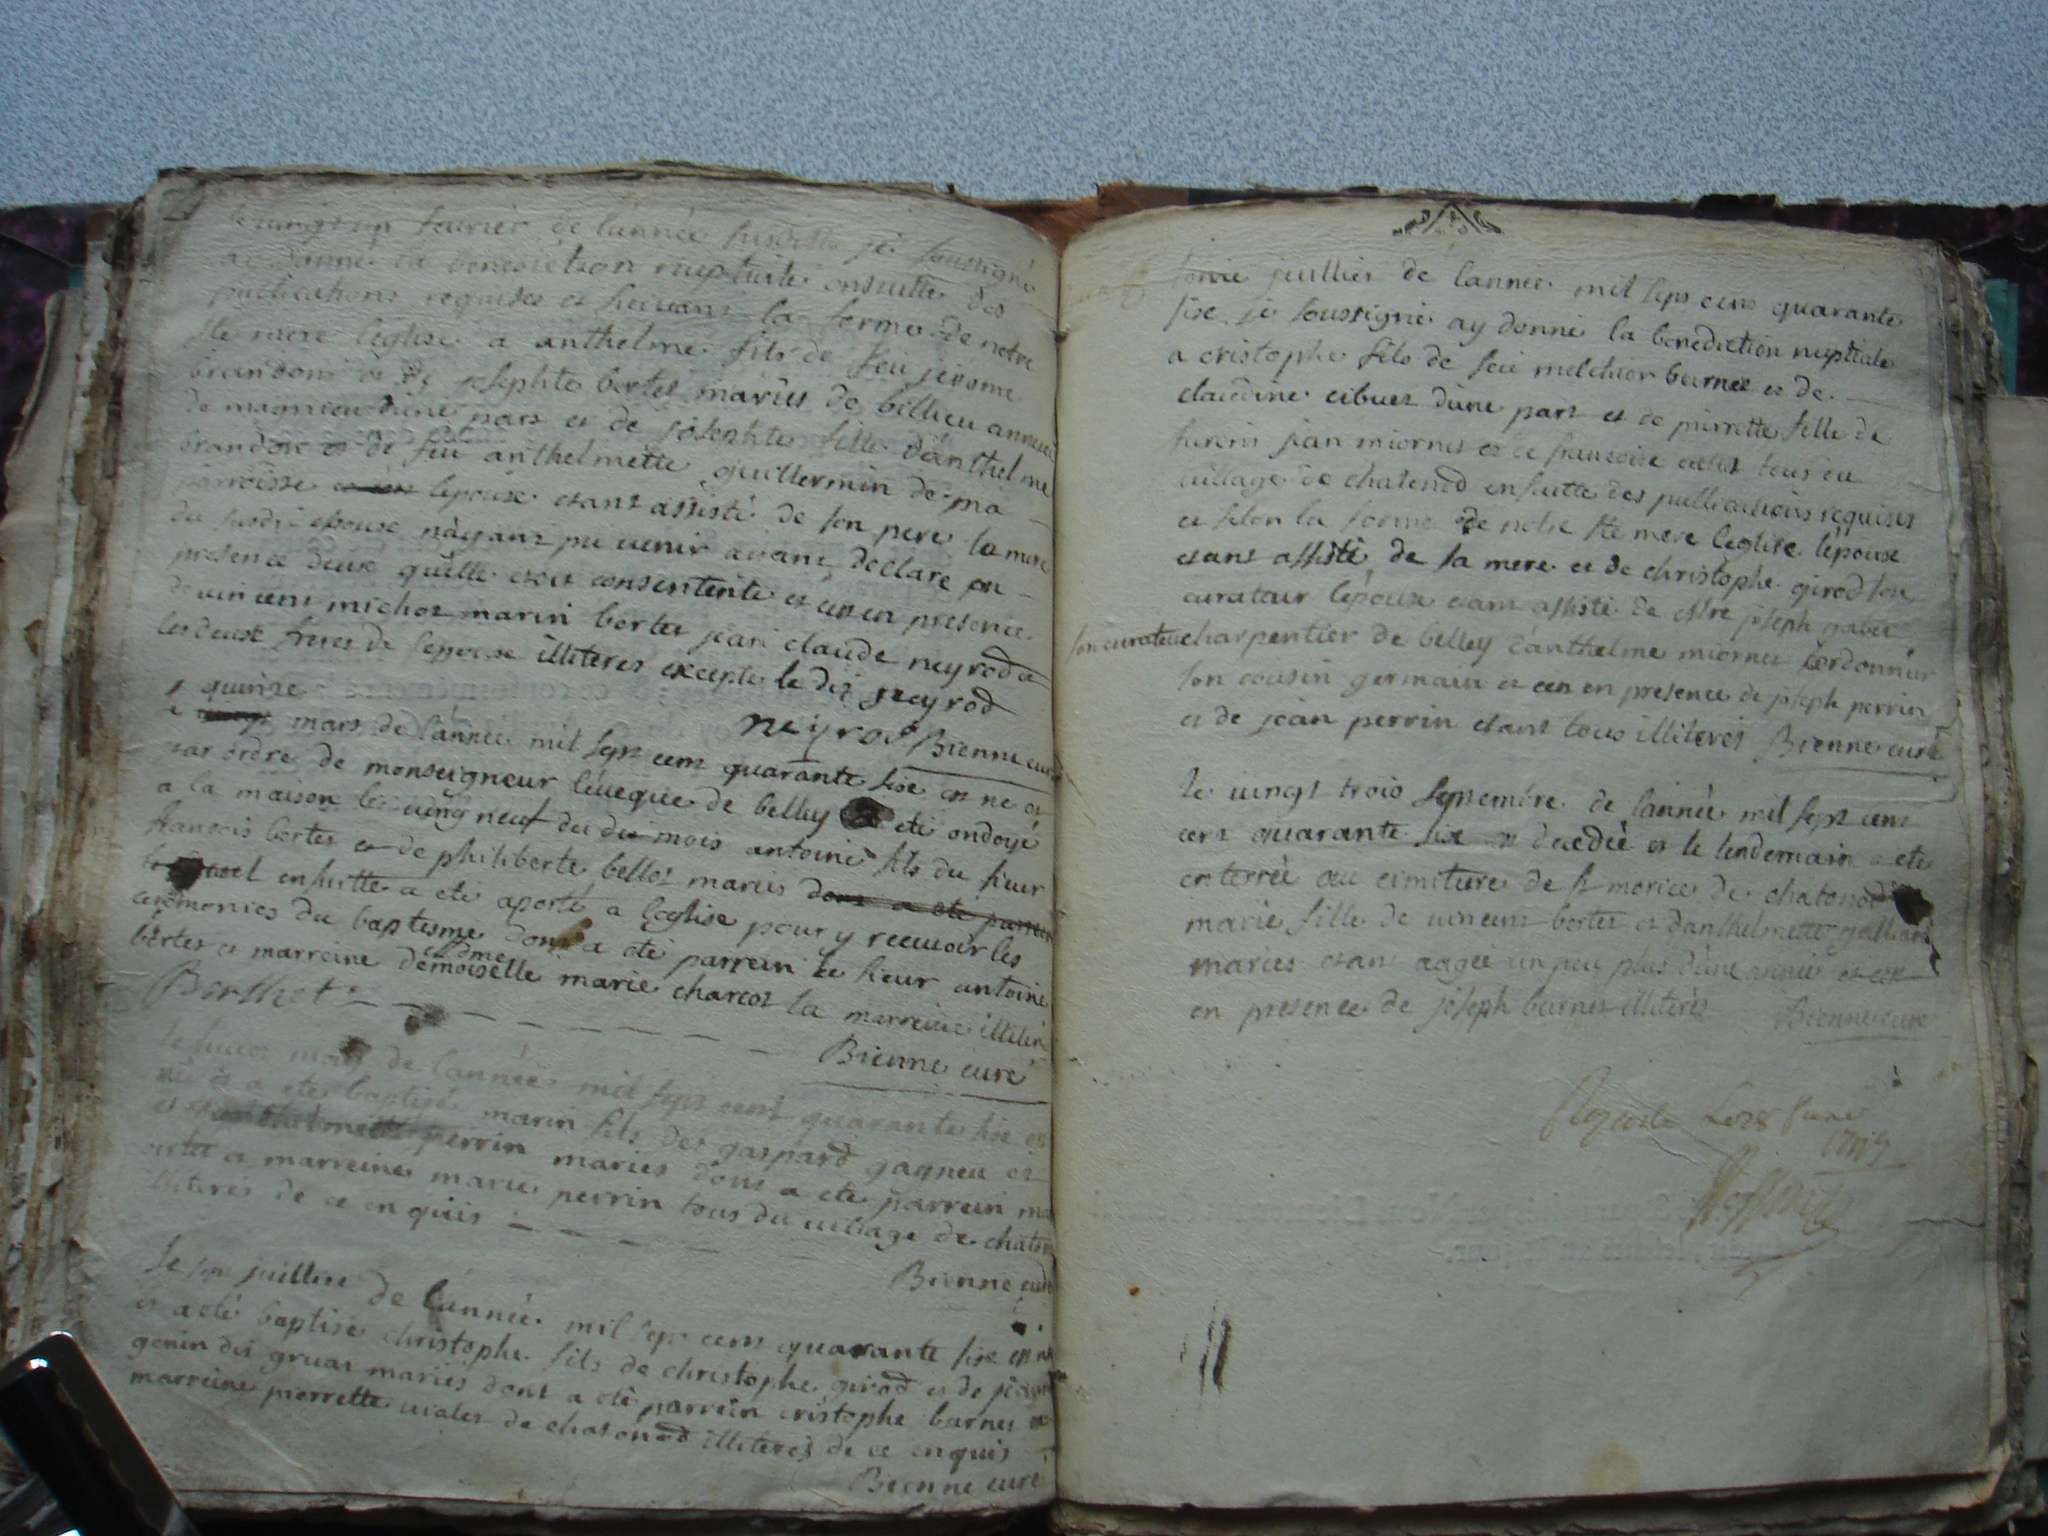 fevrier de lannée susditte je soussigné
ay donné la benediction nuptiale ensuitte des
publications requises et suivant la forme de notre
ste mere leglise a anthelme fils de feu jerome
brandon et de josephte bertet mariés de billieu annexe
de magnieu dune part et de josephte fille danthelme
brandon et de feu anthelmette guillermin de ma
parroisse lepouse etant assisté de son pere la mere
du susdit epouse nayant pu venir aiant declaré en
presence deux quelle etoit consentente et cen en presence
de vincent michot marin bertet jean claude neyrod et
les deux freres de lepouse illiteres excepte le dit neyrod
neyrod Bienne curé
quinze
le mars de lannée mil sept cent quarante sixe est né et
par ordre de monseigneur léveque de belley a eté ondoyé
a la maison le vingneuf du dit mois antoine fils du sieur
francois bertet et de philiberte bellot mariés dont a eté parrein
ensuitte a eté aporté a leglise pour y recevoir les
ceremonies du baptesme dont a eté parrein le sieur antoine
bertet et marreine demoiselle marie charcot la marreine illitere
Berthet
Bienne curé
mars de lannée mil sept cent quarante sixe est
né et a eté baptisé marin fils de gaspard gagneu et
anthelmette perrin mariés dont a eté parrein ma
marreine marie perrin tous du village de chaton
illiterés de ce enquis
Bienne curé
le juillet de lannée mil sept cent quarante sixe est né
et a eté baptisé christophe fils de christophe girod et de
genin dit gruat mariés dont a eté parrein cristophe burnet et
marreine pierrette vialet de chatonod illiterés de ce enquis
Bienne curé
juillier de lannée mil sept cens quarante
sixe je soussigné ay donné la benediction nuptiale
a cristophe fils de feu melchior burnet et de
claudine cibuet dune part et de pierrette fille de
jean miornet et de francoise tous du
village de chatonod ensuitte des publications requises
et selon la forme de notre ste mere leglise lépoux
etant assisté de sa mere et de christophe girod son
curateur lépouse etant assisté de joseph
son curateur charpentier de belley danthelme miornet cordonnier
son cousin germain et cen en presence de joseph perrin
et de jean perrin etant tous illiterés Bienne curé
le vingt trois septembre de lannée mil sept cent
cent quarante six est decedée et le lendemain a eté
enterrée au cimitiere de st morice de chatonod
marie fille de vincent bertet et danthelmette galliard
mariés etant aagée un peu plus dune année et cen
en presence de joseph burnet illiterés Bienne curé